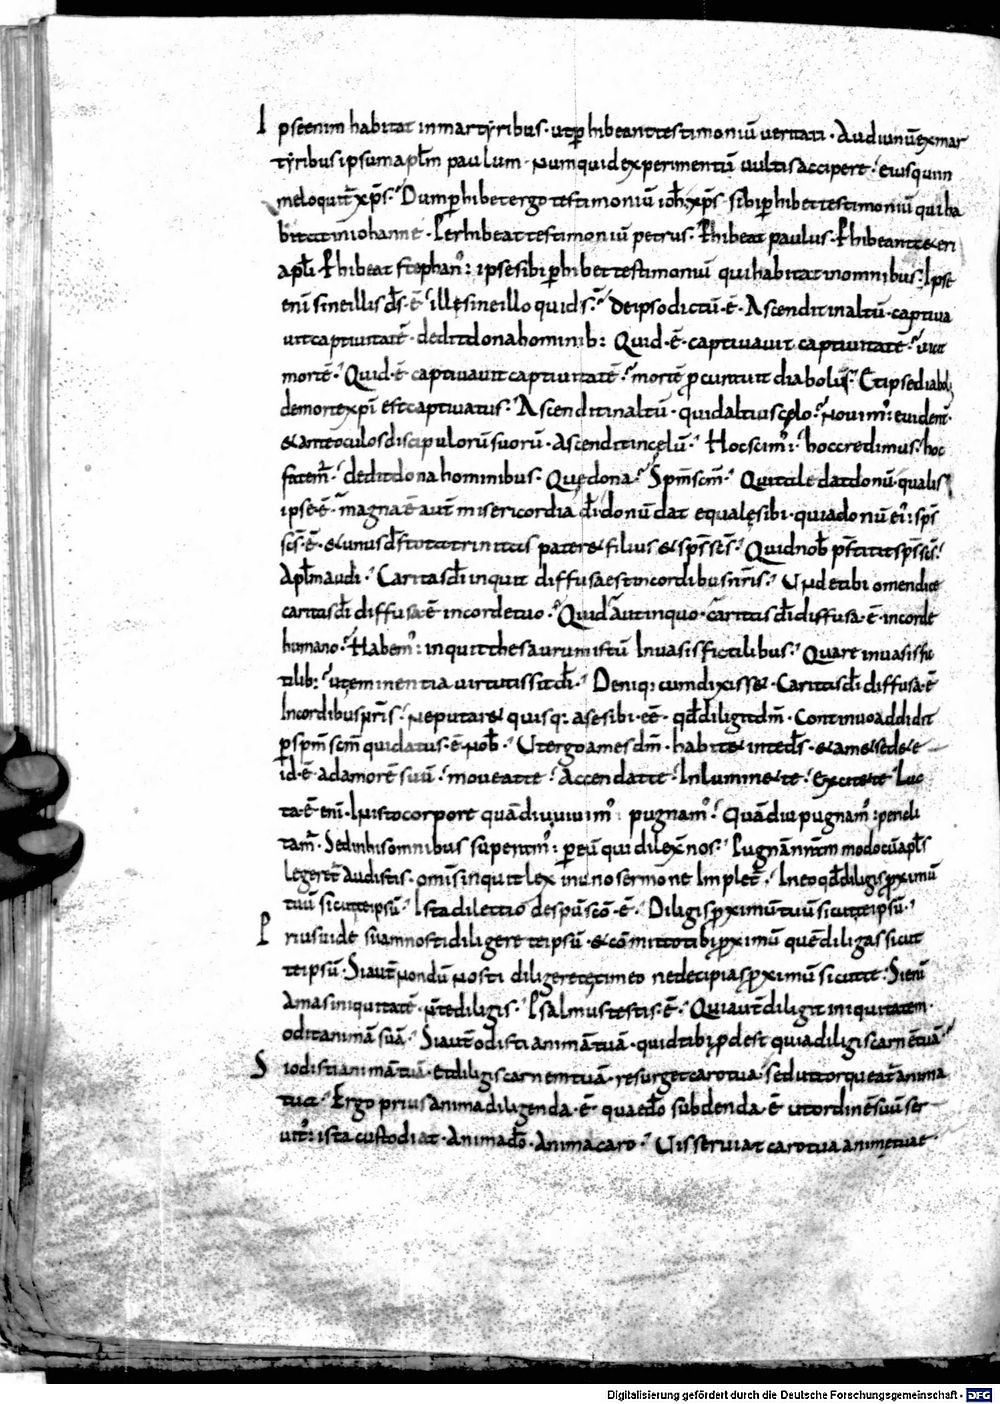 Ipse enim habitat in martyribus · ut phibeant testimoniū veritati · Audi unū ex mar
tyribus ipsum aplm paulum · Numquid experimentū vultis accipere · eius qui in
me loquit̄ xp̄s · Dum phibet ergo testimoniū ioh̄ xp̄s · sibi phibet testimoniū qui ha
bitat in iohanne · Perhibeat testimoniū petrus · Phibeat paulus · Phibeant &
apli · Phibeat stephan' : ipse sibi phibet testimoniū qui habitat in omnibus : Ipse
eni sine illis d̄s · ē · ille sine illo quid s · De ipso dictū · ē · Ascendit in altū · captiva
vit captivitatē · dedit dona hominib: Quid · ē · captivavit captivitatē · vicit
mortē · Quid · ē · captivavit captivitatē · mortē pcuravit diabolus · Et ipse diabol
de morte xp̄i est captivatus · Ascendit in altū · quid altius cęlo · Novim' : evident
& ante oculos discipulorū suorū · ascendit in cęlū · Hoc scim' : hoc credimus · hoc
fatem̄ · dedit dona hominibus · Quę dona · Sp̄m sc̄m · Qui tale dat donū · qualis
ipse · ē · magna ē aut̄ misericordia d̄i donū dat equalę sibi · quia donū ei' : sp̄s
sc̄s · ē · & unus d̄s tota trinitas pater & filius & sp̄s sc̄s · Quid nob̄ p̄stitit sp̄s sc̄s
Aplm audi · Caritas d̄i inquit diffusa est in cordibus nr̄is · Unde tibi o mendice
caritas d̄i diffusa · ē in corde tuo · Quid aut in quo · caritas d̄i diffusa · ē · in corde
humano · Habem' : inquit thesaurum istū In vasis fictilibus · Quare in vasis fic
tilib: ut eminentia virtutis sit d̄i · Deniq; cum dixiss& · Caritas d̄i diffusa · ē
In cordibus nr̄is · Ne putar& quisq; a se sibi · ee · qd diligit dm̄ · Continuo addidit
p sp̄m sc̄m qui datus · ē nob̄ · Ut ergo ames dm̄ · habit& in te d̄s · & am& se de te
id · ē · ad amorē suū · moveat te · Accendat te · Inlumin& te · Excit& te · Luc
ta · ē eni · In isto corpore quādiu vivim' pugnam' · Quādiu pugnam' : pericli
tam̄ · Sed in his omnibus superam' : p eū qui dilexit nos · Pugnā nr̄am modo cū apl̄s
leger& audistis · omis inquit lex in uno sermone Implet̄ · In eo qd diligis pximū
tuū sicut te ipsū · Ista dilectio de spū sc̄o · ē · Diligis pximū tuū sicut te ipsū ·
Prius vide si iam nosti diligere te ipsū · & cōmitto tibi pximū quē diligas sicut
te ipsū · Si aut nondū nosti diligere te timeo ne decipias pximū sicut te · Si eni
Amas iniquitatē · n̄ te diligis · Psalmus testis · ē · Qui aut̄ diligit iniquitatem ·
odit animā suā · Si aut̄ odisti animā tuā · quid tibi pdest quia diligis carnē tuā
Si odisti animā tuā · et diligis carnem tuā · resurget caro tua · sed ut torqueat̄ anima
tua · Ergo prius anima diligenda · ē · quae d̄o subdenda · ē ut ordinē suū ser
vit' : ista custodiat · Anima d̄o · Animae caro · Vis serviat caro tua animę tuae